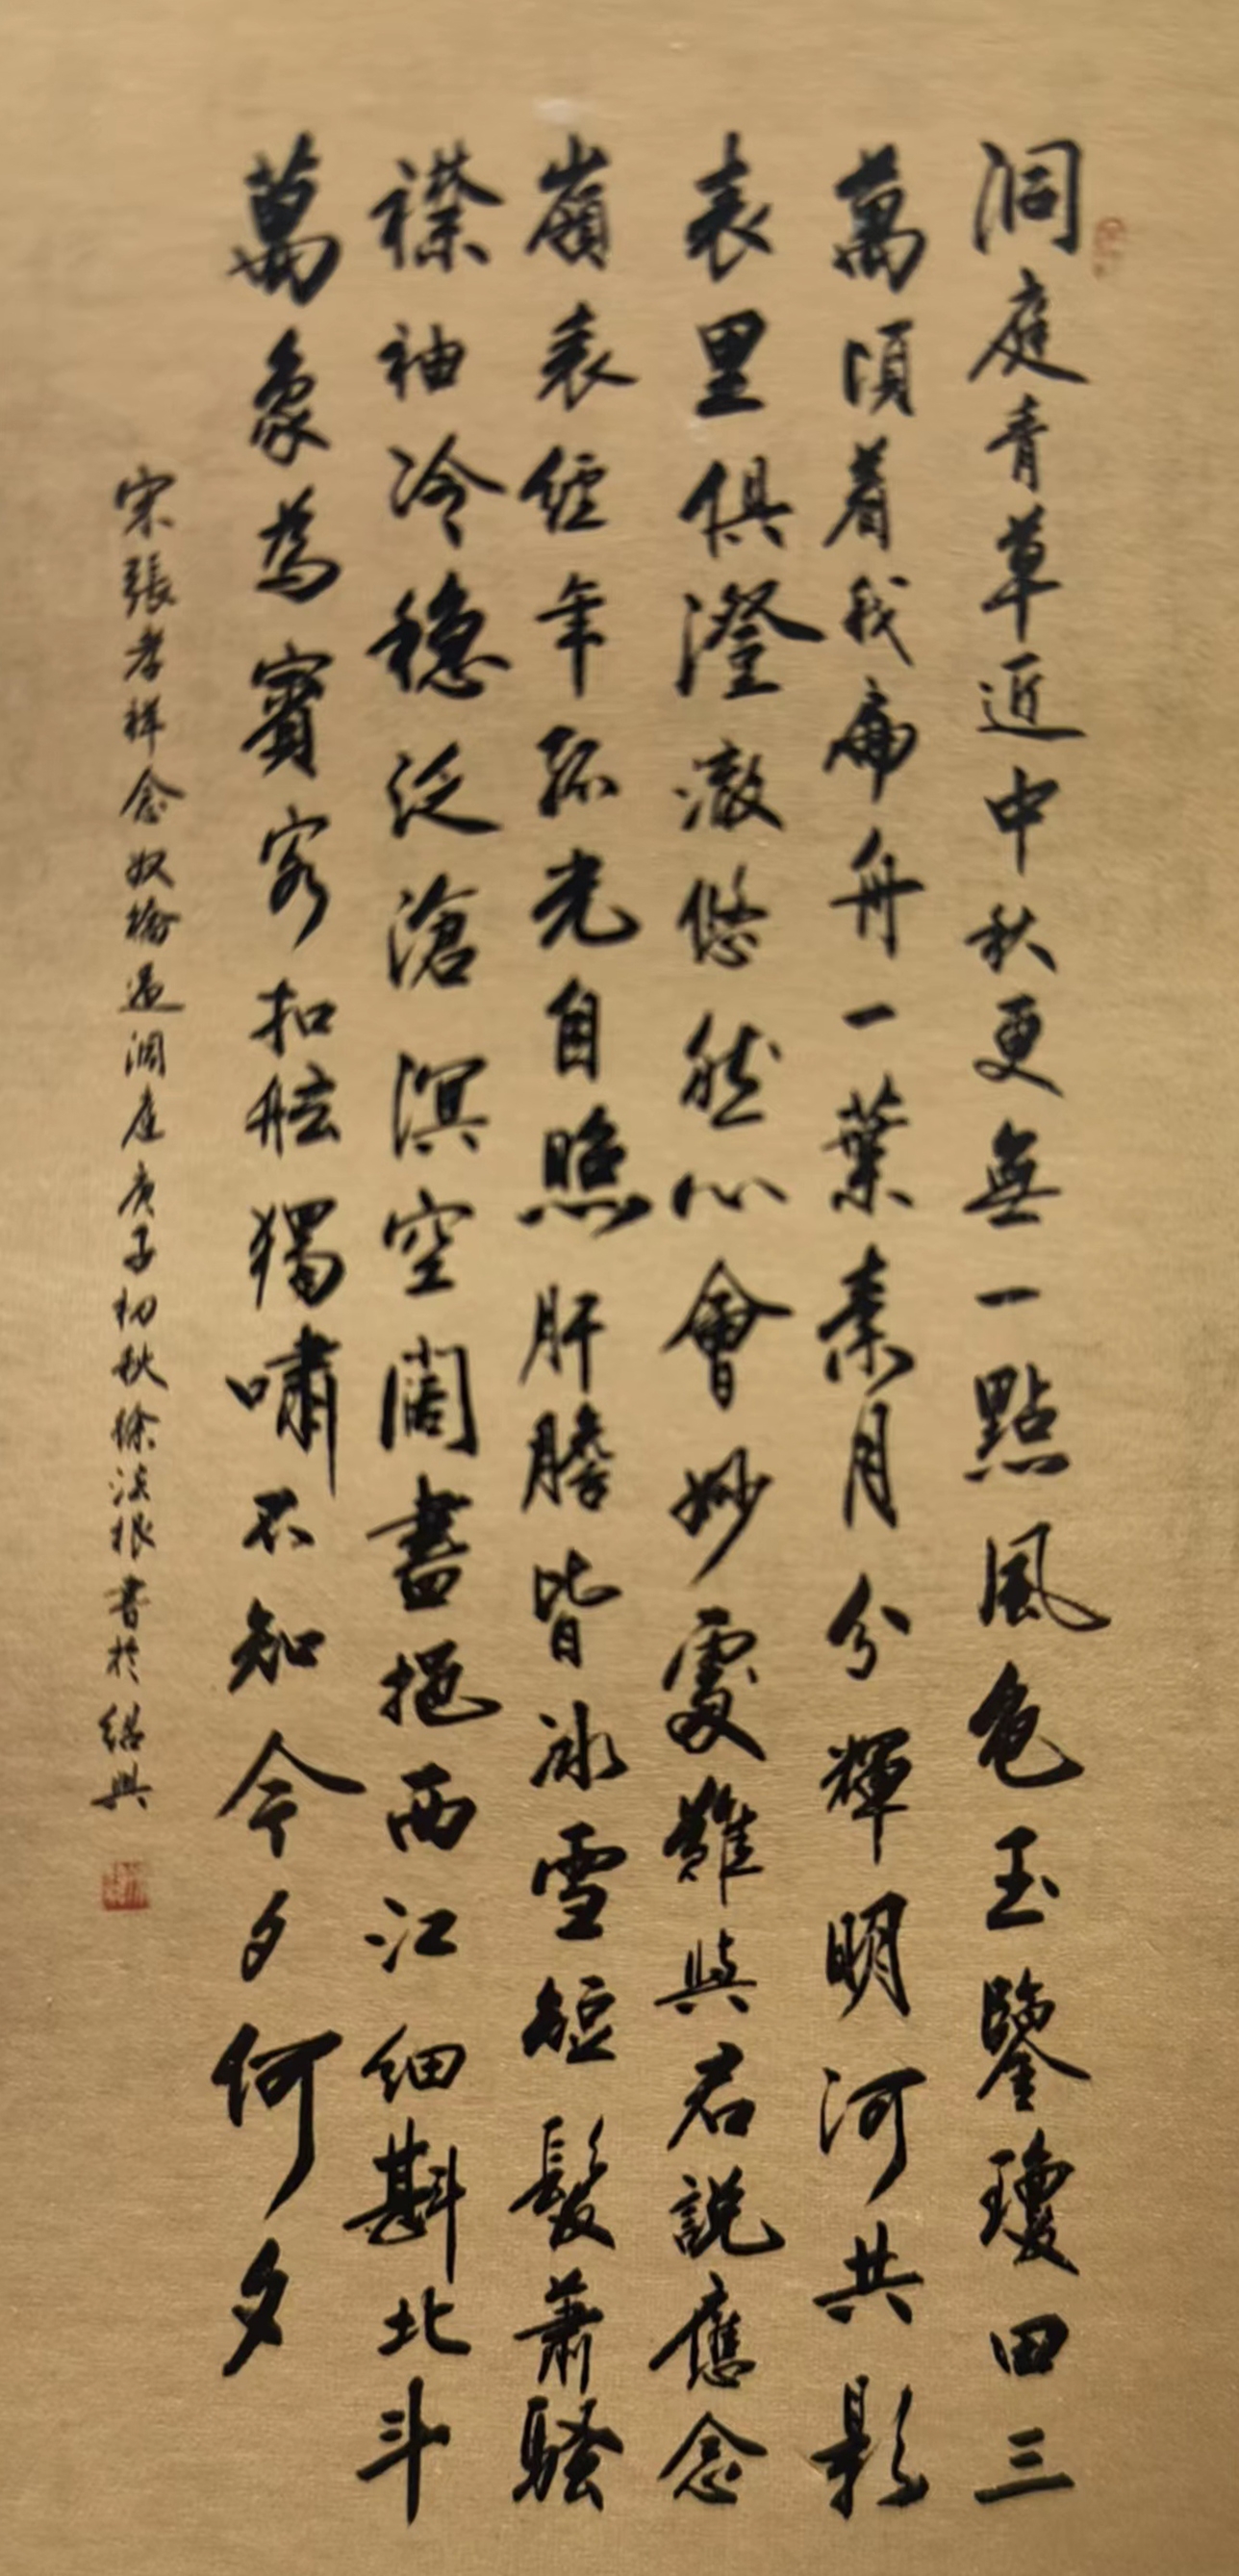 洞庭青草近中秋更無一點風色玉鑒瓊田三
萬頃着我扁舟一葉素月分輝明河共影
表里俱澄澈悠然心會妙處難與君說應念
嶺表經年孤光自照肝膽皆冰雪短髮蕭騷
襟袖冷穩泛滄溟空闊盡挹西江細斟北斗
萬象為賓客扣舷獨嘯不知今夕何夕
宋張孝祥念奴嬌過洞庭庚子初秋徐法根書於紹興